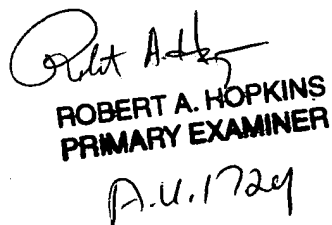 Robert A. Hopkins
ROBERT A. HOPKINS
PRIMARY EXAMINER
A.U. 1724